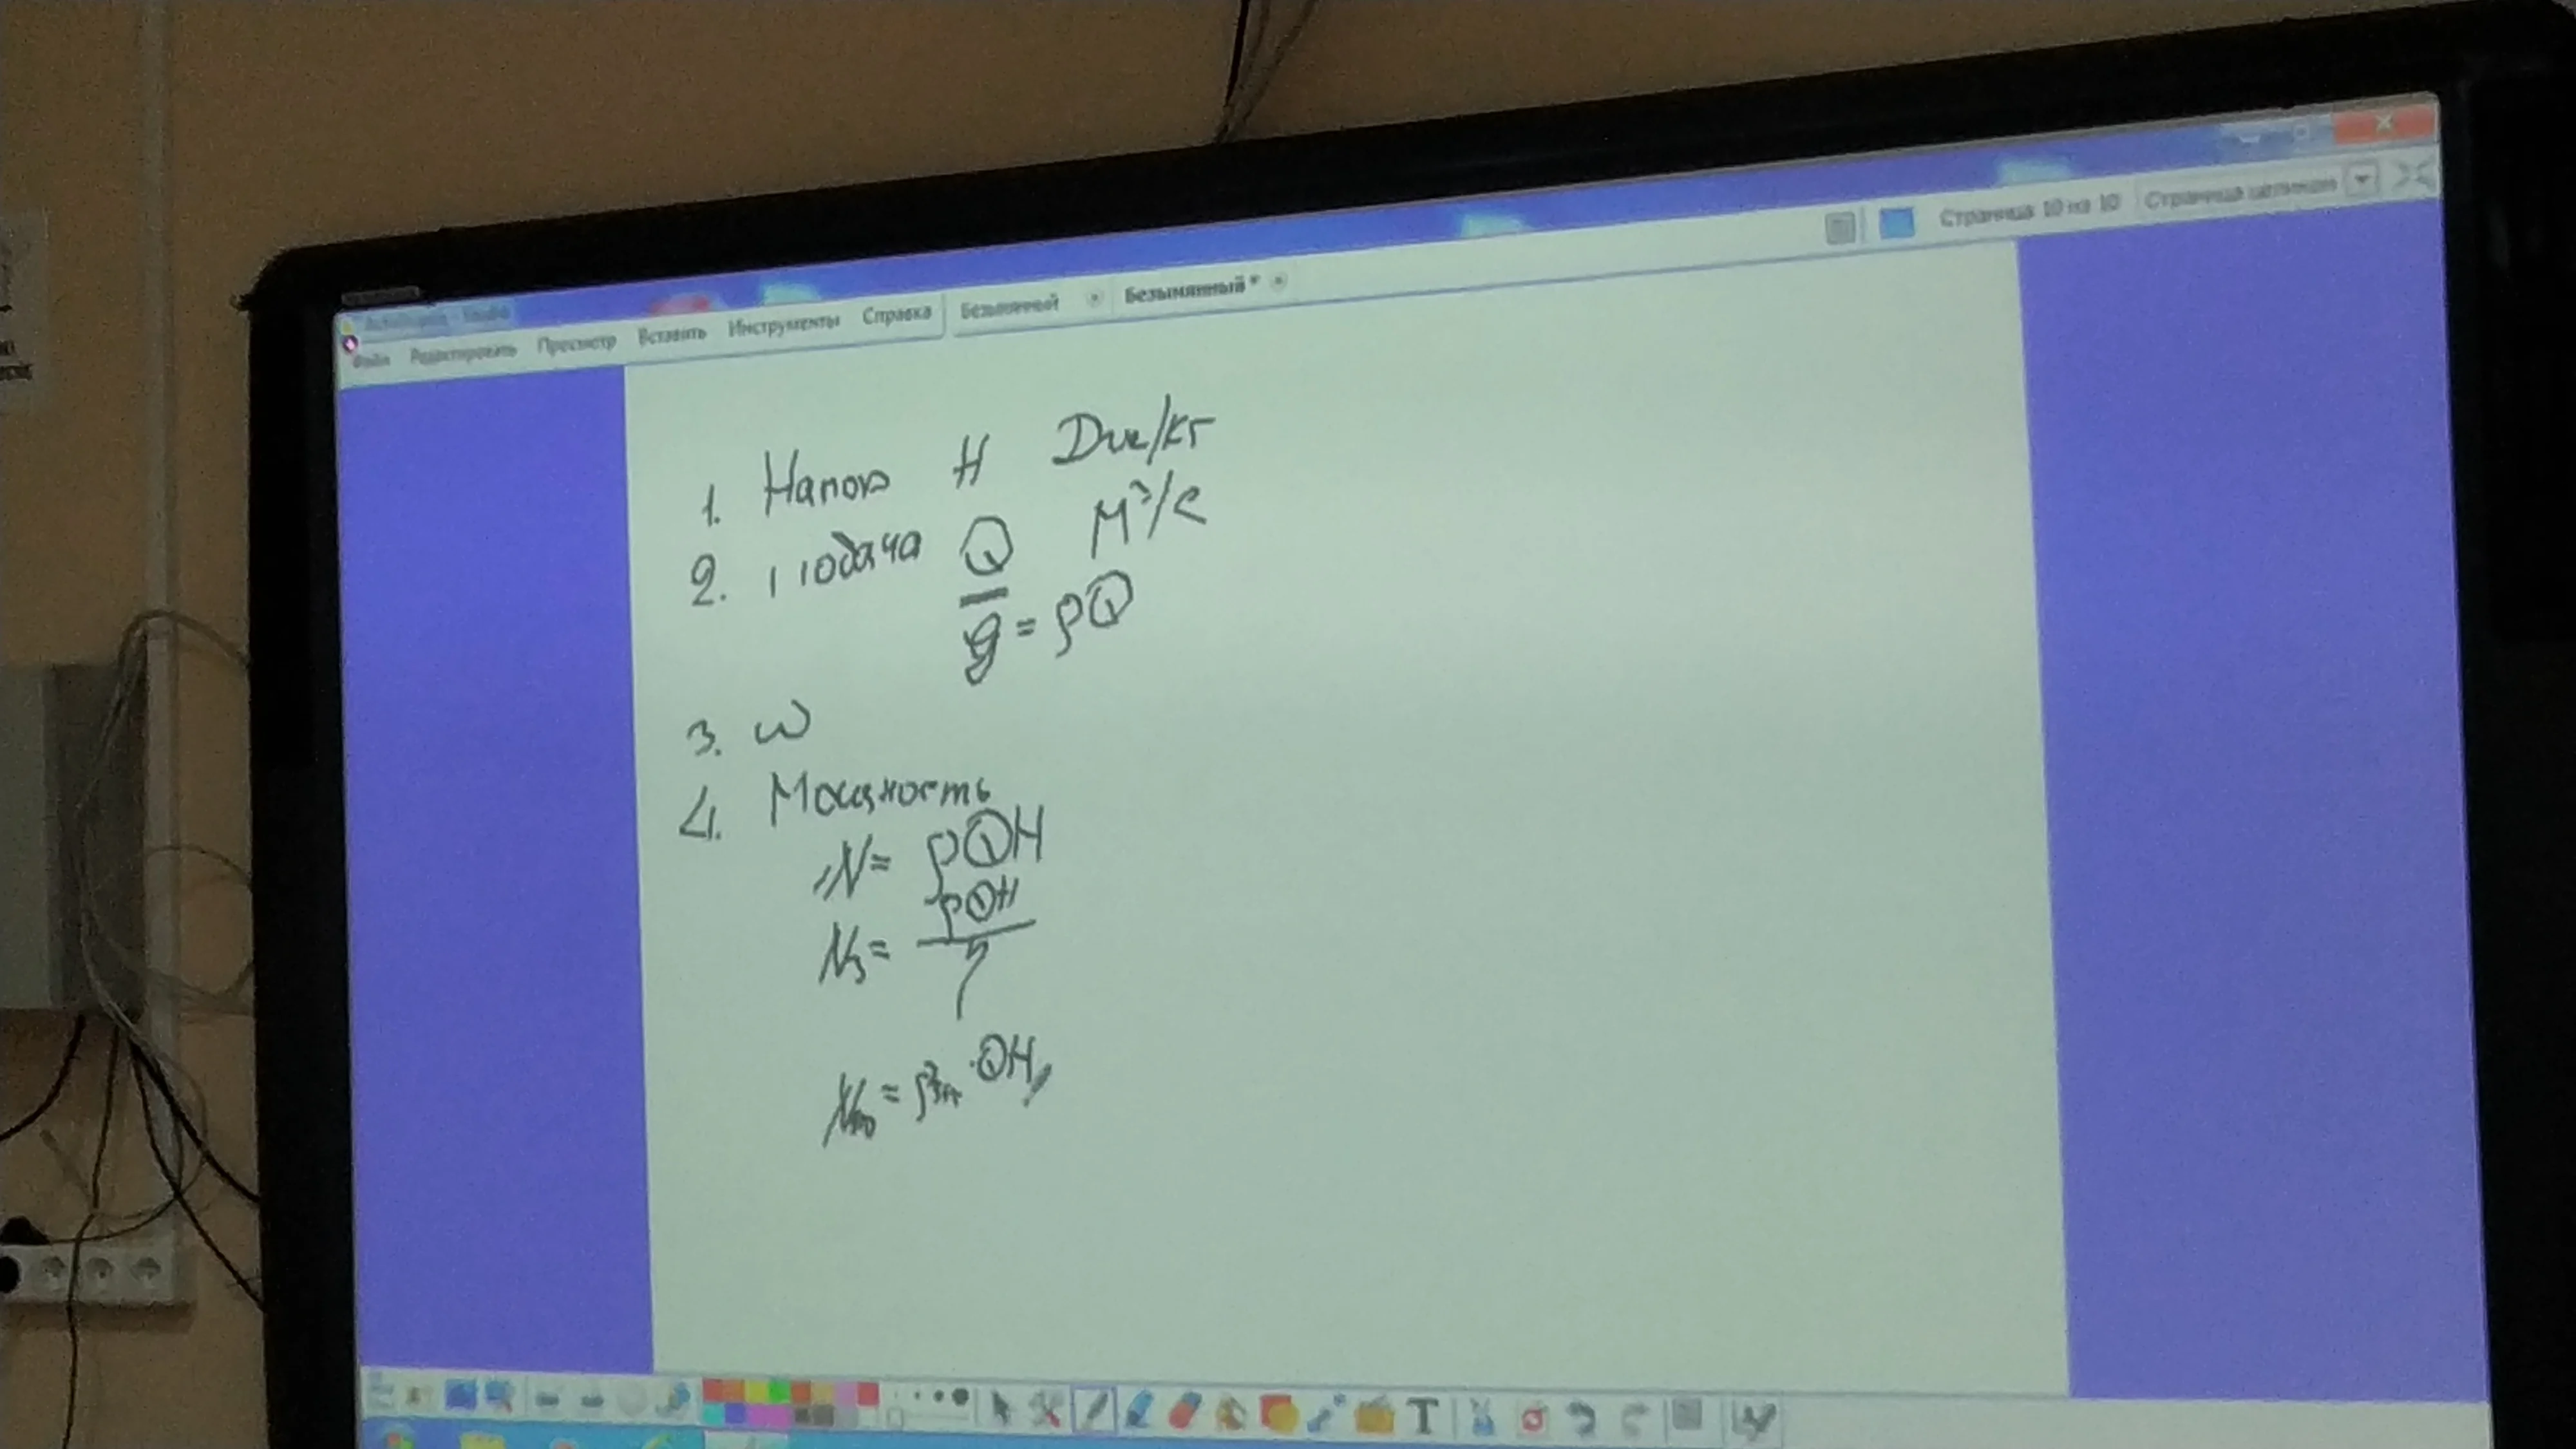 Файл Редактировать Просмотр Вставить Инструменты Справка Безымянный Безымянный*
Страница 10 из 10 Страница целиком
1. Напор H Дж/кг
2. Подача Q м³/с
g = ρQ
3. ω
4. Мощность
N = ρQH
N₃ = ρQH / η
QH
T